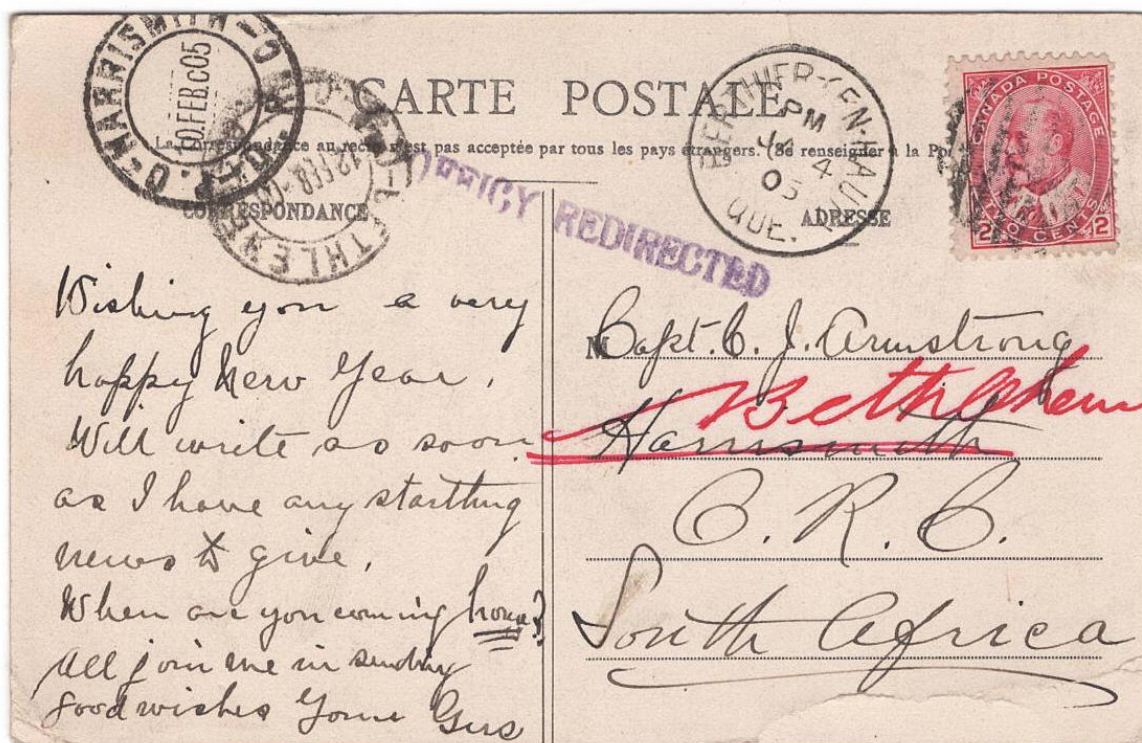 HARRISMITH — O.R.C
10.FEB.05
P.O.
CARTE POSTALE
La Correspondance au recto n'est pas acceptée par tous les pays étrangers. (Se renseigner à la
THLEHE
12 FEB
CORRESPONDANCE
REDIRECTED
BERTHIER-(EN-HAUT)
PM
JA 4
05
QUE.
ADRESSE
CANADA POSTAGE
2 TWO CENTS 2
Wishing you a very
happy New Year.
Will write so soon
as I have any startling
news to give.
When are you coming home?
All join me in sending
good wishes Yours Gus
M Capt. C. J. Armstrong
Bethlehem
Harrismith
O. R. C.
South Africa